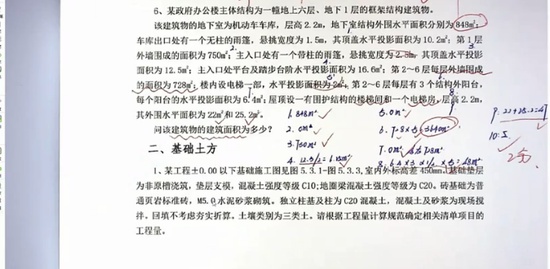 6、某政府办公楼主体结构为一幢地上六层、地下1层的框架结构建筑物。
该建筑物的地下室为机动车车库，层高2.2m，地下室结构外围水平面积分别为848㎡；
车库出口处有一个无柱的雨篷，悬挑宽度为1.5m，其顶盖水平投影面积为10.2㎡；第1层
外墙围成的面积为750㎡；主入口处有一个带柱的雨篷，悬挑宽度为2.3m，其顶盖水平投影
面积为12.5㎡；主入口处平台及踏步台阶水平投影面积为16.6㎡；第2～6层每层外墙围成
的面积为728㎡；楼内设电梯一部，水平投影面积为2㎡；第2～6层每层有3个结构外阳台，
每个阳台的水平投影面积为6.4㎡；屋顶设一有围护结构的楼梯间和一个电梯房，层高2.2m，
其外围水平面积为22㎡和25.2㎡。
问该建筑物的建筑面积为多少？
1. 848㎡
2. 0㎡
3. 750㎡
5. 0㎡
7. 0㎡
10. 5
二、基础土方
1、某工程±0.00以下基础施工图见图5.3.1-图5.3.3，室内外标高差450mm。基础垫层
为非原槽浇筑，垫层支模，混凝土强度等级C10；地圈梁混凝土强度等级为C20。砖基础为普
通页岩标准砖，M5.0水泥砂浆砌筑。独立柱基及柱为C20混凝土，混凝土及砂浆为现场搅
拌，回填不考虑夯实折算。土壤类别为三类土。请根据工程量计算规范确定相关清单项目的
工程量。